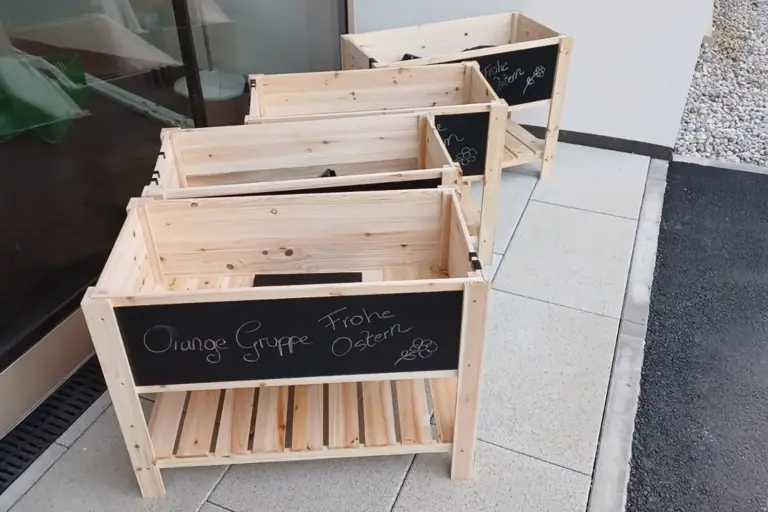 Orange Gruppe Frohe
Ostern
Frohe
Ostern